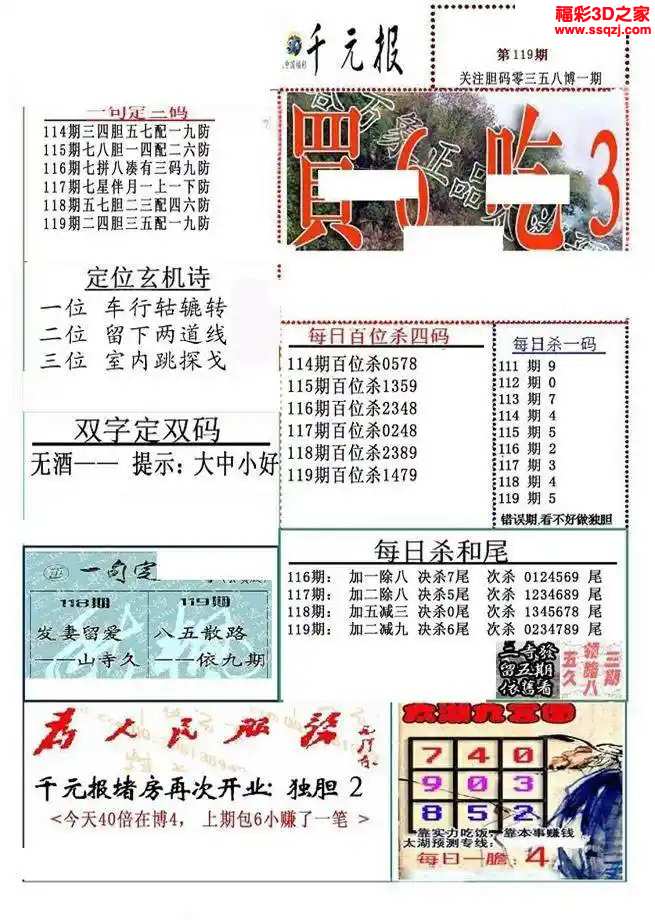 福彩3D之家
www.ssqzj.com
中国福彩
千元报
第119期
关注胆码零三五八博一期
一句定三码
114期三四胆五七配一九防
115期七八胆一四配二六防
116期七拼八凑有三码九防
117期七星伴月一上一下防
118期五七胆二三配四六防
119期二四胆三五配一九防
買6吃3
定位玄机诗
一位 车行轱辘转
二位 留下两道线
三位 室内跳探戈
每日百位杀四码
114期百位杀0578
115期百位杀1359
116期百位杀2348
117期百位杀0248
118期百位杀2389
119期百位杀1479
每日杀一码
111 期 9
112 期 0
113 期 7
114 期 4
115 期 5
116 期 2
117 期 3
118 期 4
119 期 5
错误期,看不好做独胆
双字定双码
无酒—— 提示: 大中小好
每日杀和尾
116期: 加一除八 决杀7尾 次杀 0124569 尾
117期: 加二除八 决杀5尾 次杀 1234689 尾
118期: 加五减三 决杀0尾 次杀 1345678 尾
119期: 加二减九 决杀6尾 次杀 0234789 尾
一句定
118期
发妻留爱
——山寺久
119期
八五散路
——依九期
三寺发
留五期
依旧看
三期
领路八
五久
为人民服务
千元报堵房再次开业: 独胆 2
<今天40倍在博4, 上期包6小赚了一笔 >
太湖九宫图
7 4 0
9 0 3
8 5 2
靠实力吃饭, 靠本事赚钱
太湖预测专线:
每日一胆: 4